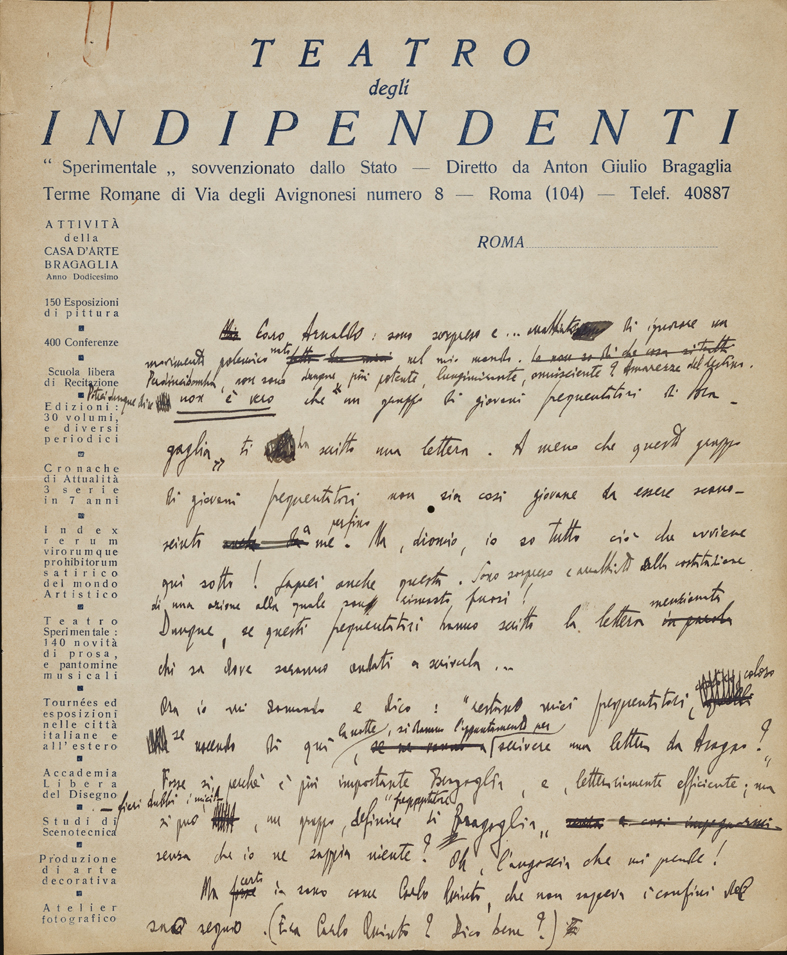 TEATRO
degli
INDIPENDENTI
“ Sperimentale „ sovvenzionato dallo Stato — Diretto da Anton Giulio Bragaglia
Terme Romane di Via degli Avignonesi numero 8 — Roma (104) — Telef. 40887
ROMA
ATTIVITÀ
della
CASA D'ARTE
BRAGAGLIA
Anno Dodicesimo
150 Esposizioni
di pittura
400 Conferenze
Scuola libera
di Recitazione
Edizioni:
30 volumi,
e diversi
periodici
Cronache
di Attualità
3 serie
in 7 anni
Index
rerum
virorumque
prohibitorum
satirico
del mondo
Artistico
Teatro
Sperimentale:
140 novità
di prosa,
e pantomine
musicali
Tournées ed
esposizioni
nelle città
italiane e
all'estero
Accademia
Libera
del Disegno
Studi di
Scenotecnica
Produzione
di arte
decorativa
Atelier
fotografico
Caro Arnaldo: sono sorpreso e ... di ignorare un
movimento polemico nato nel mio mondo.
non sono dunque, più potente, lungimirante, onnisciente? Amarezze del destino.
dunque non è vero che un gruppo di giovani frequentatori di Bra-
gaglia„ ti ha scritto una lettera. A meno che questo gruppo
di giovani frequentatori non sia così giovane da essere scono-
sciuto a me perfino. Ma, dionoio, io so tutto ciò che avviene
qui sotto! Saprei anche questa. Sono sorpreso e della costituzione
di una azione alla quale sono rimasto fuori!
Dunque, se questi frequentatori hanno scritto la lettera menzionata
chi sa dove saranno andati a scriverla ...
Ora io mi domando e dico: "costoro miei frequentatori,
se uscendo di qui la notte, si danno l'appuntamento per scrivere una lettera da Aragno?"
Forse si, perchè è più importante Bragaglia, e, letterariamente efficiente; ma
— fieri dubbi i miei —
si può, un gruppo, definire "frequentatore di Bragaglia„
senza che io ne sappia niente? Oh, l'angoscia che mi prende!
Ma certo io sono come Carlo Quinto, che non sapeva i confini del
suo regno. (Era Carlo Quinto? Dico bene?)